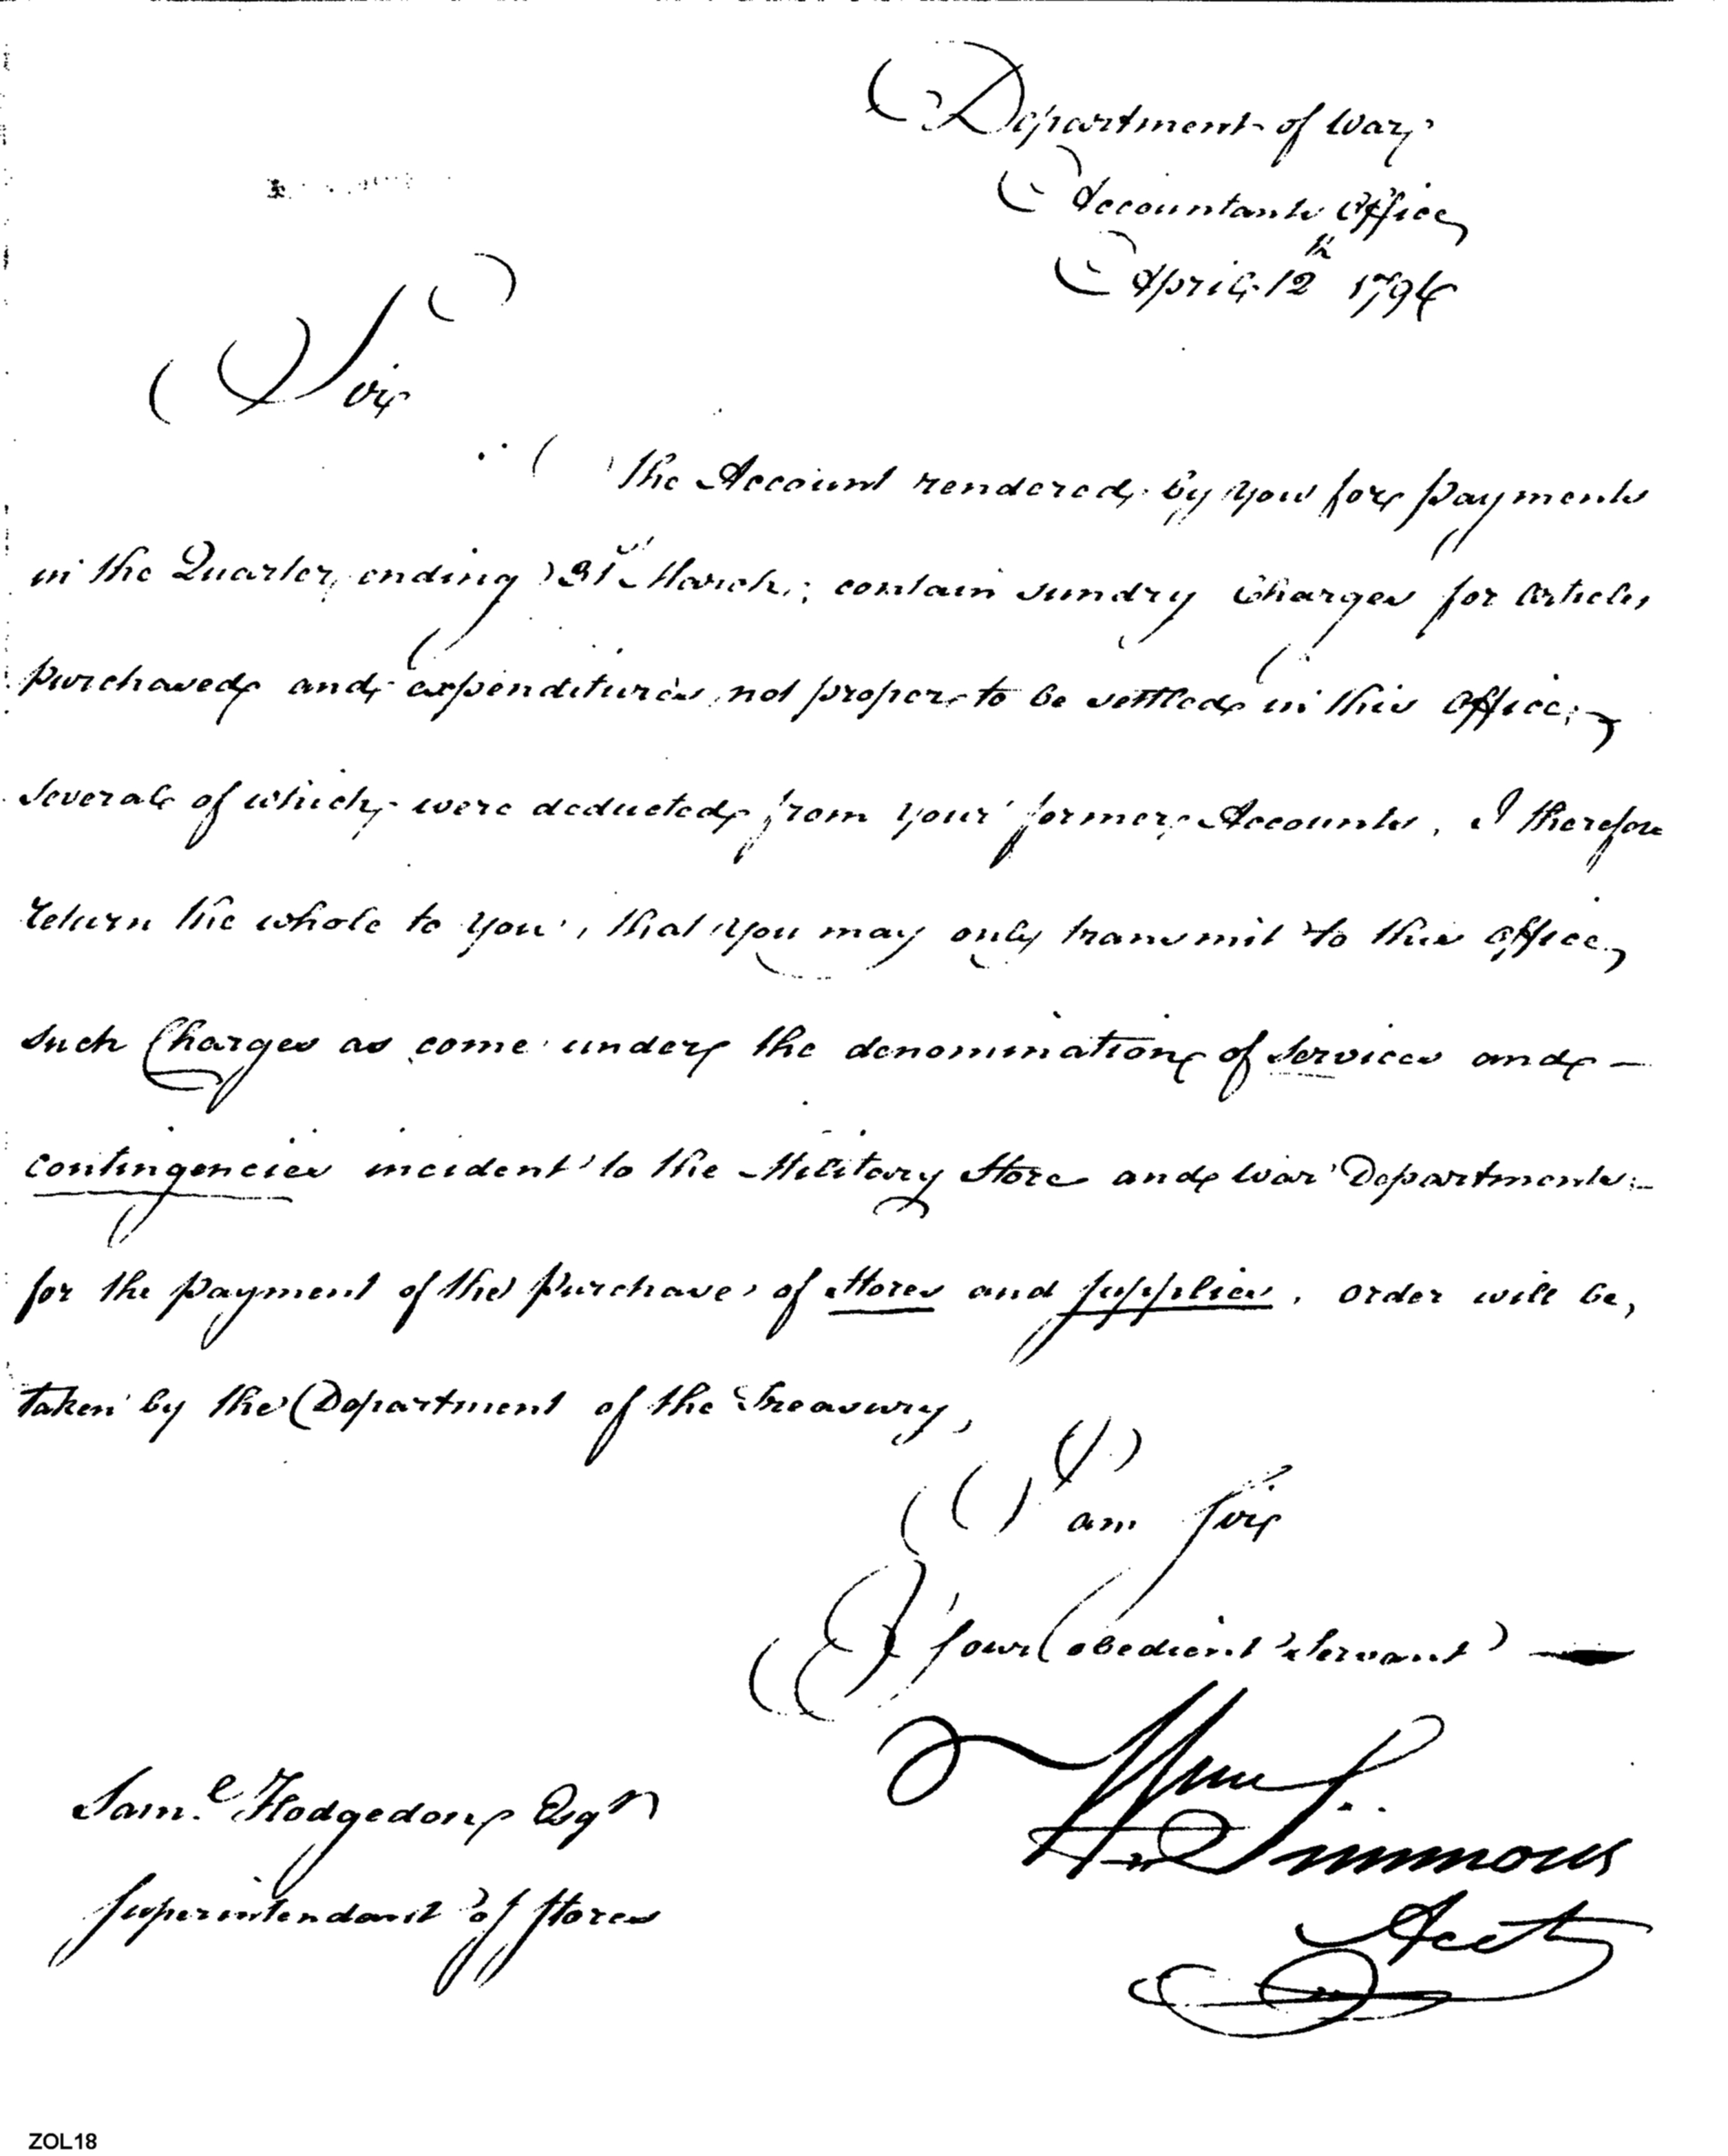 Department of War
Accountants Office
April 12th 1794
Sir
The Account rendered by you for payments
in the Quarter ending 31st March; contain sundry Charges for articles
purchased and expenditures not proper to be settled in this office;
several of which were deducted from your former Accounts. I therefore
return the whole to you, that you may only transmit to this office,
such Charges as come under the denomination of Services and –
contingencies incident to the Military Store and War Departments:–
for the payment of the purchase of Stores and supplies. order will be,
taken by the Department of the Treasury,
I am Sir
Your obedient Servant
Wm Simmons
Acct
Saml. Hodgedon Esqr
Superintendant of Stores
ZOL18